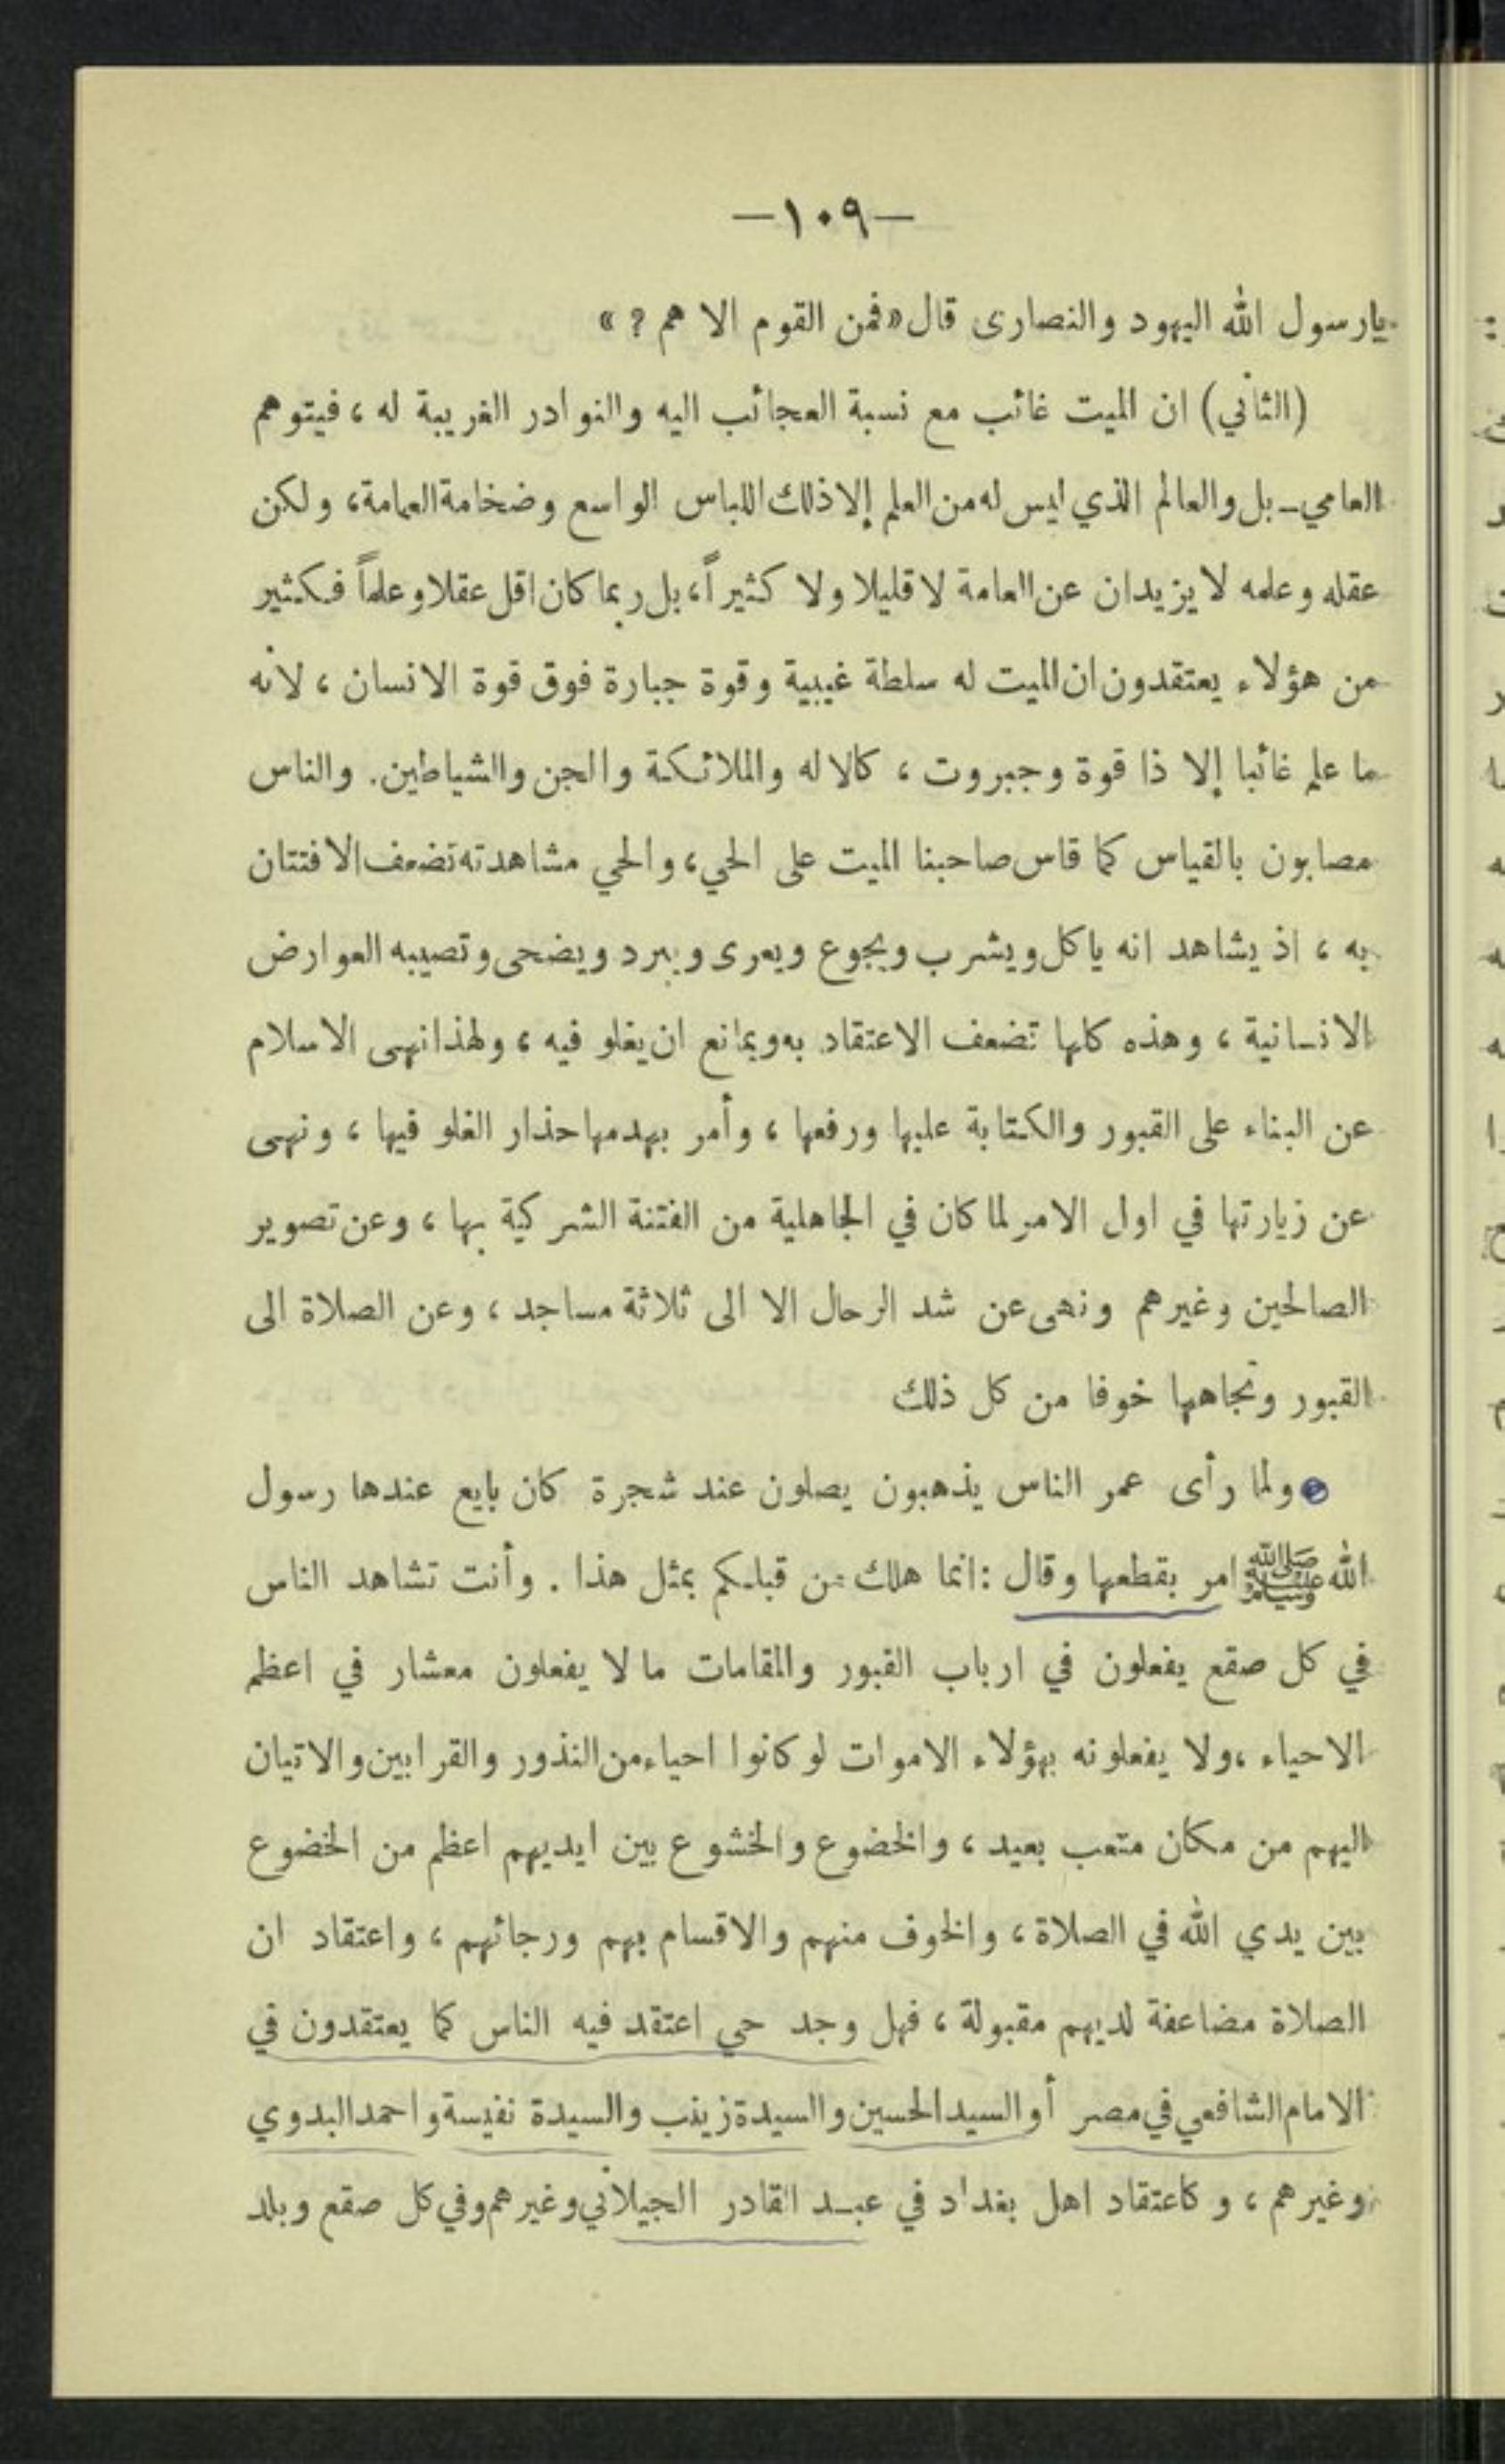 —١٠٩—
يارسول الله اليهود والنصارى قال «فمن القوم الا هم ? »
(الثاني) ان الميت غائب مع نسبة العجائب اليه والنوادر الغريبة له ، فيتوهم
العامي ـ بل والعالم الذي ليس له من العلم إلا ذلك اللباس الواسع وضخامة العمامة، ولكن
عقله وعلمه لا يزيدان عن العامة لا قليلا ولا كثيراً، بل ربما كان اقل عقلا وعلماً فكثير
من هؤلاء يعتقدون ان الميت له سلطة غيبية وقوة جبارة فوق قوة الانسان ، لانه
ما علم غائبا إلا ذا قوة وجبروت ، كالاله والملائكة والجن والشياطين. والناس
مصابون بالقياس كما قاس صاحبنا الميت على الحي، والحي مشاهدته تضعف الافتتان
به ، اذ يشاهد انه ياكل ويشرب ويجوع ويعرى ويبرد ويضحى وتصيبه العوارض
الانسانية ، وهذه كلها تضعف الاعتقاد به ويمانع ان يغلو فيه ، ولهذا نهى الاسلام
عن البناء على القبور والكتابة عليها ورفعها ، وأمر بهدمها حذار الغلو فيها ، ونهى
عن زيارتها في اول الامر لما كان في الجاهلية من الفتنة الشركية بها ، وعن تصوير
الصالحين وغيرهم ونهى عن شد الرحال الا الى ثلاثة مساجد ، وعن الصلاة الى
القبور وتجاهها خوفا من كل ذلك
ولما رأى عمر الناس يذهبون يصلون عند شجرة كان بايع عندها رسول
الله ﷺ امر بقطعها وقال : انما هلك من قبلكم بمثل هذا . وأنت تشاهد الناس
في كل صقع يفعلون في ارباب القبور والمقامات ما لا يفعلون معشار في اعظم
الاحياء ،ولا يفعلونه بهؤلاء الاموات لو كانوا احياء من النذور والقرابين والاتيان
اليهم من مكان متعب بعيد ، والخضوع والخشوع بين ايديهم اعظم من الخضوع
بين يدي الله في الصلاة ، والخوف منهم والاقسام بهم ورجائهم ، واعتقاد ان
الصلاة مضاعفة لديهم مقبولة ، فهل وجد حي اعتقد فيه الناس كما يعتقدون في
الامام الشافعي في مصر أو السيد الحسين والسيدة زينب والسيدة نفيسة واحمد البدوي
وغيرهم ، وكاعتقاد اهل بغداد في عبد القادر الجيلاني وغيرهم وفي كل صقع وبلد